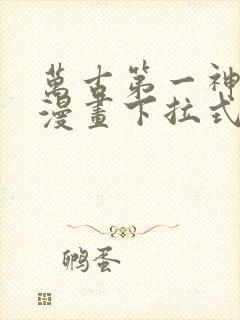 萬古第一神
漫畫下拉式
鸭蛋